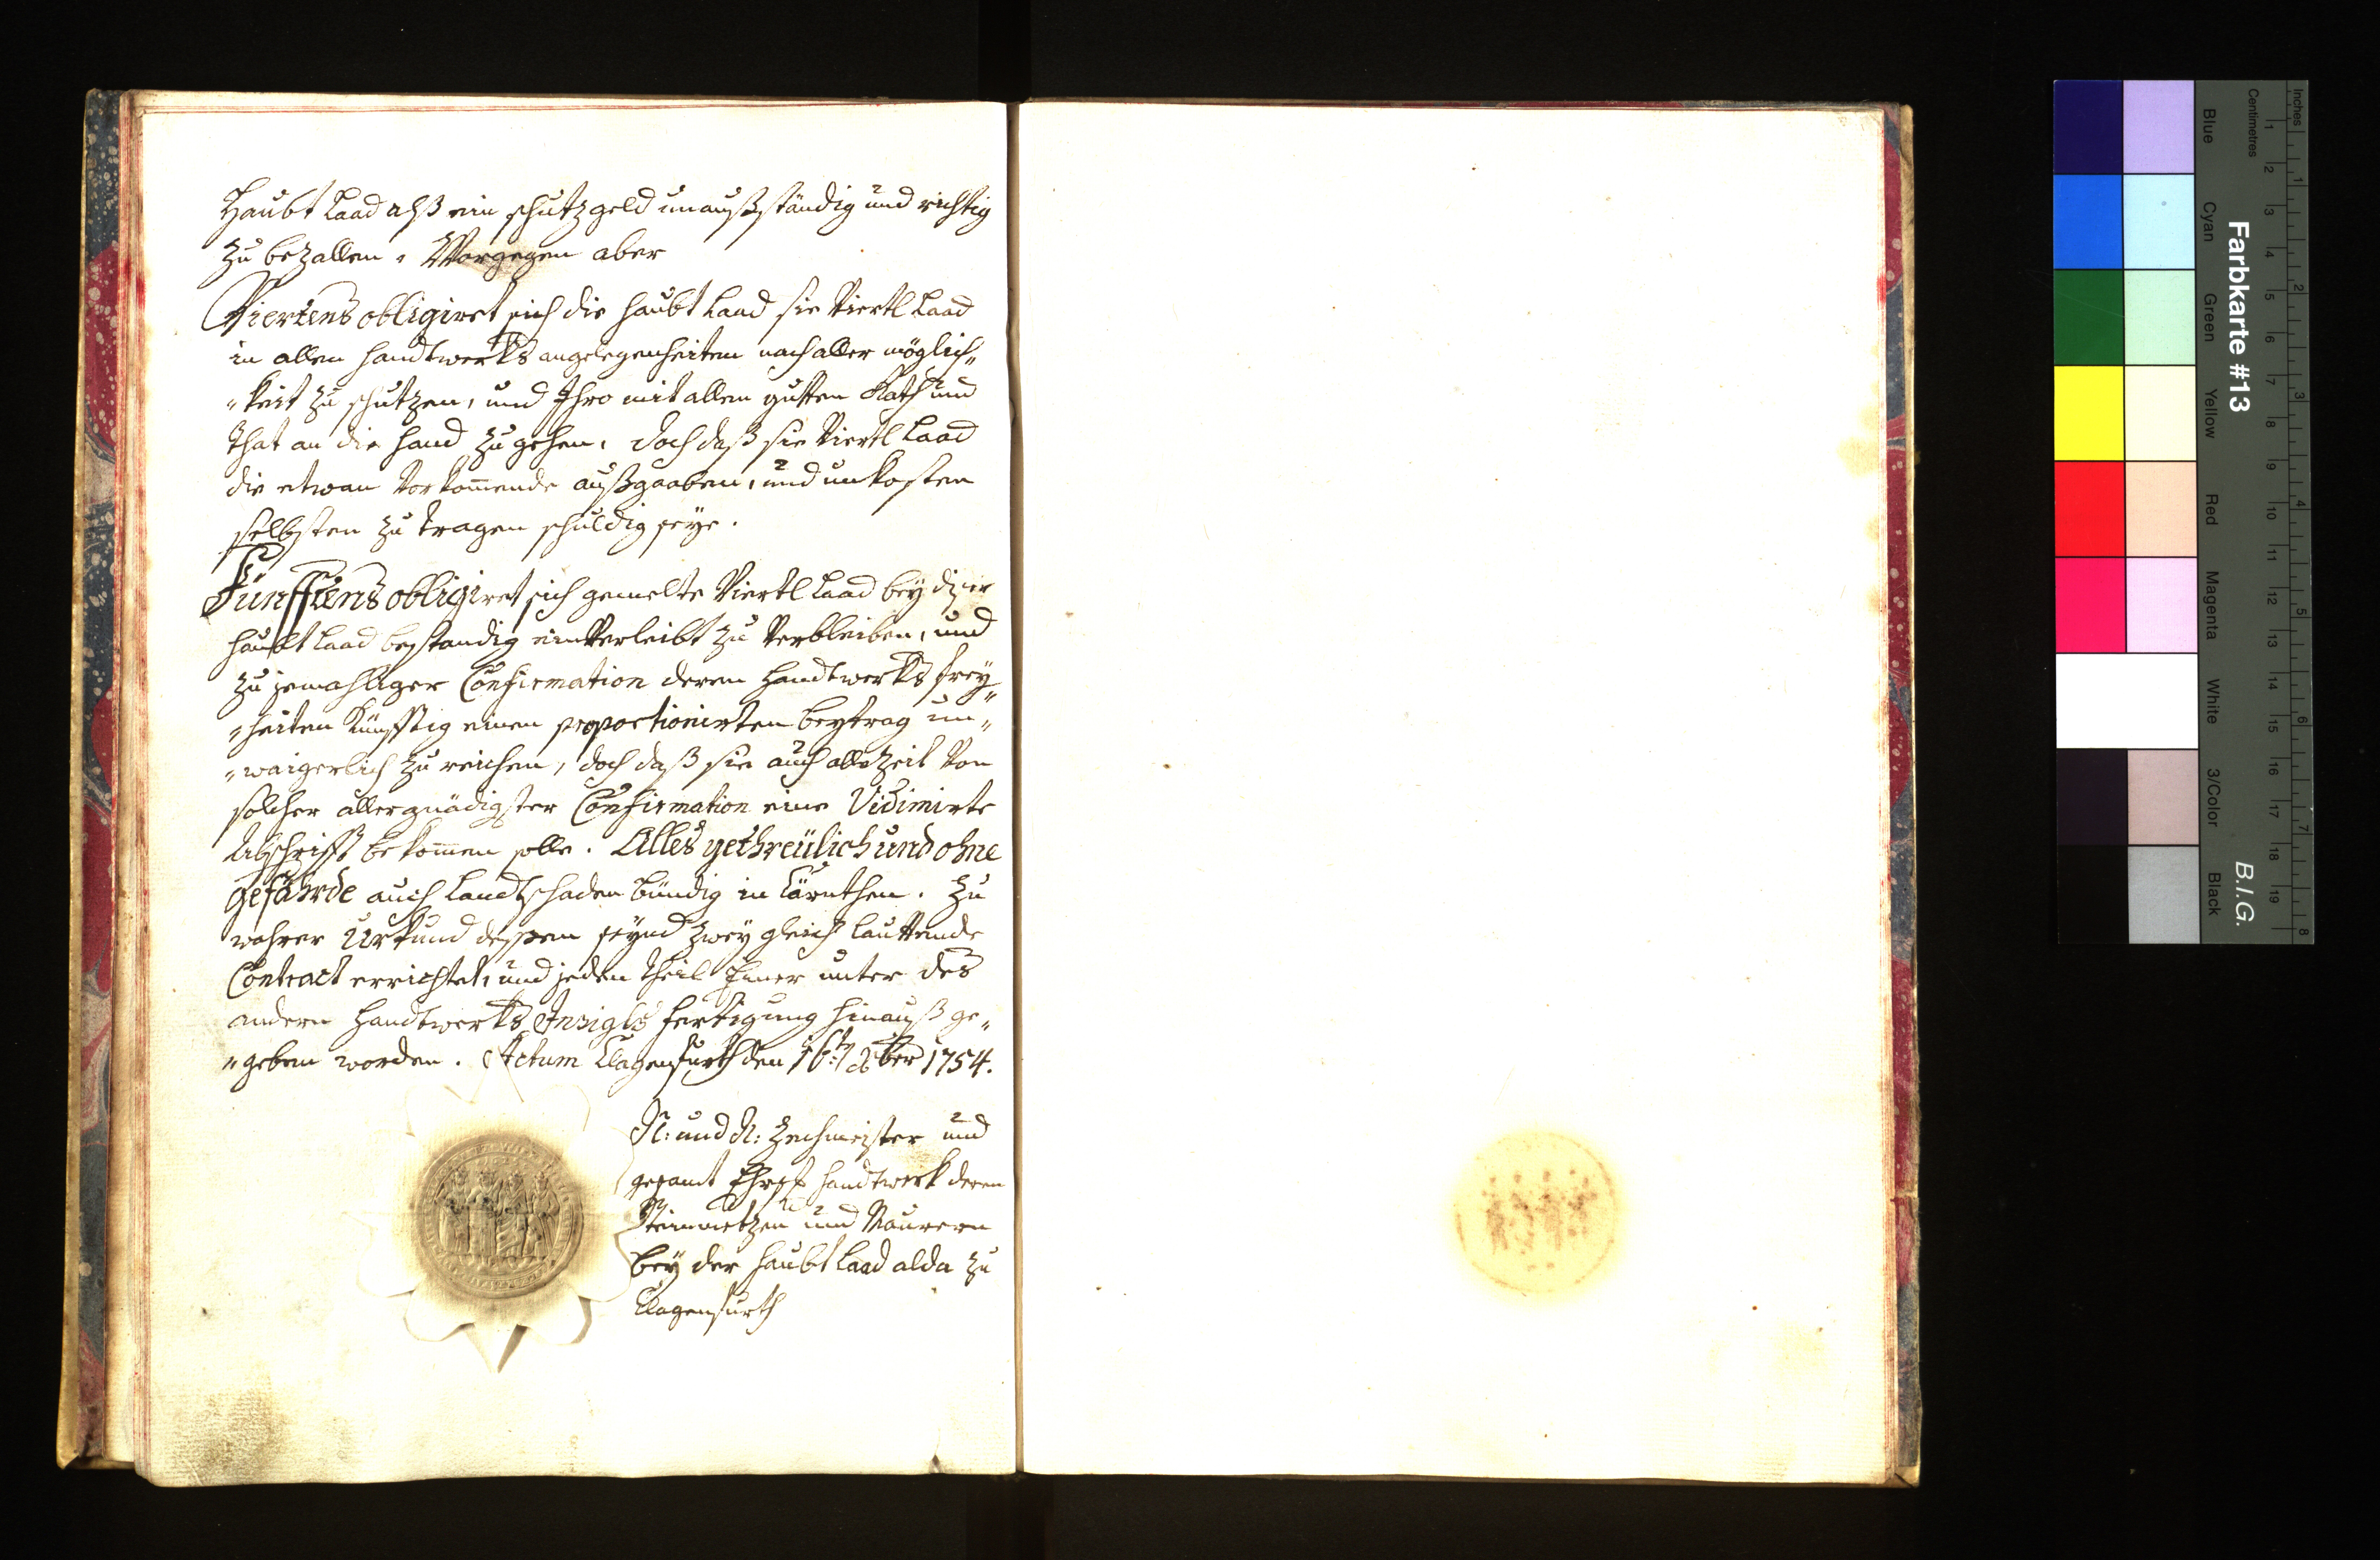 Haubt Laad alß ein schutzgeld unaußständig und richtig
zu bezallen. Worgegen aber
Viertens obligiret sich die haubt Laad sie Viertl Laad
in allen handtwerkhs angelegenheiten nach aller möglich„
„keit zu schutzen, und Ihro mit allem gutten Rath und
that an die hand zu gehen, doch daß sie Viertl Laad
die etwan vorkom̄ende außgaaben, und unkosten
selbsten zu tragen schuldig seye.
Fünfftens obligiret sich gemelte Viertl Laad bey diser
haubt Laad beständig einverleibt zu verbleiben, und
zu jemahliger Confirmation deren Handtwerkhs frey„
„heiten künfftig einen proportionirten beytrag un„
„waigerlich zu reichen, doch daß sie auch allezeit von
solcher allergnädigster Confirmation eine Vidimirte
Abschrifft bekom̄en solle. Alles gethreülich und ohne
gefährde auch Landtschaden bündig in Cärnthen. Zu
wahrer Urkund dessen seynd zwey gleich lauttende
Contract errichtet, und jeden theil Einer unter des
andern Handtwerkhs Insigls fertigung hinauß ge„
„geben worden. Actum Clagenfurth den 16:t Xber 1754.
N: und N: Zechmeister und
gesamt Ehrs: handtwerk deren
Steinmetzen und Maurern
bey der haubt Laad alda zu
Clagenfurth
Farbkarte #13
B.I.G.
Inches
1 2 3 4 5 6 7 8
Centimetres
1 2 3 4 5 6 7 8 9 10 11 12 13 14 15 16 17 18 19
Blue
Cyan
Green
Yellow
Red
Magenta
White
3/Color
Black